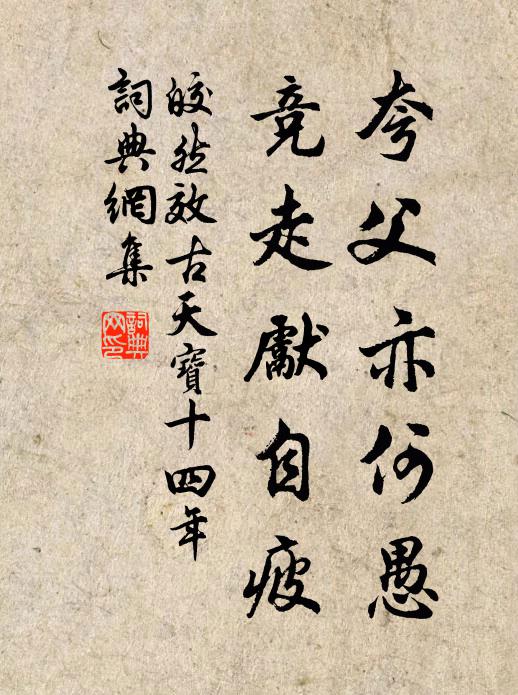 夸父亦何愚
竞走獻自疲
皎然效古天寶十四年
詞典網集
詞典
网印